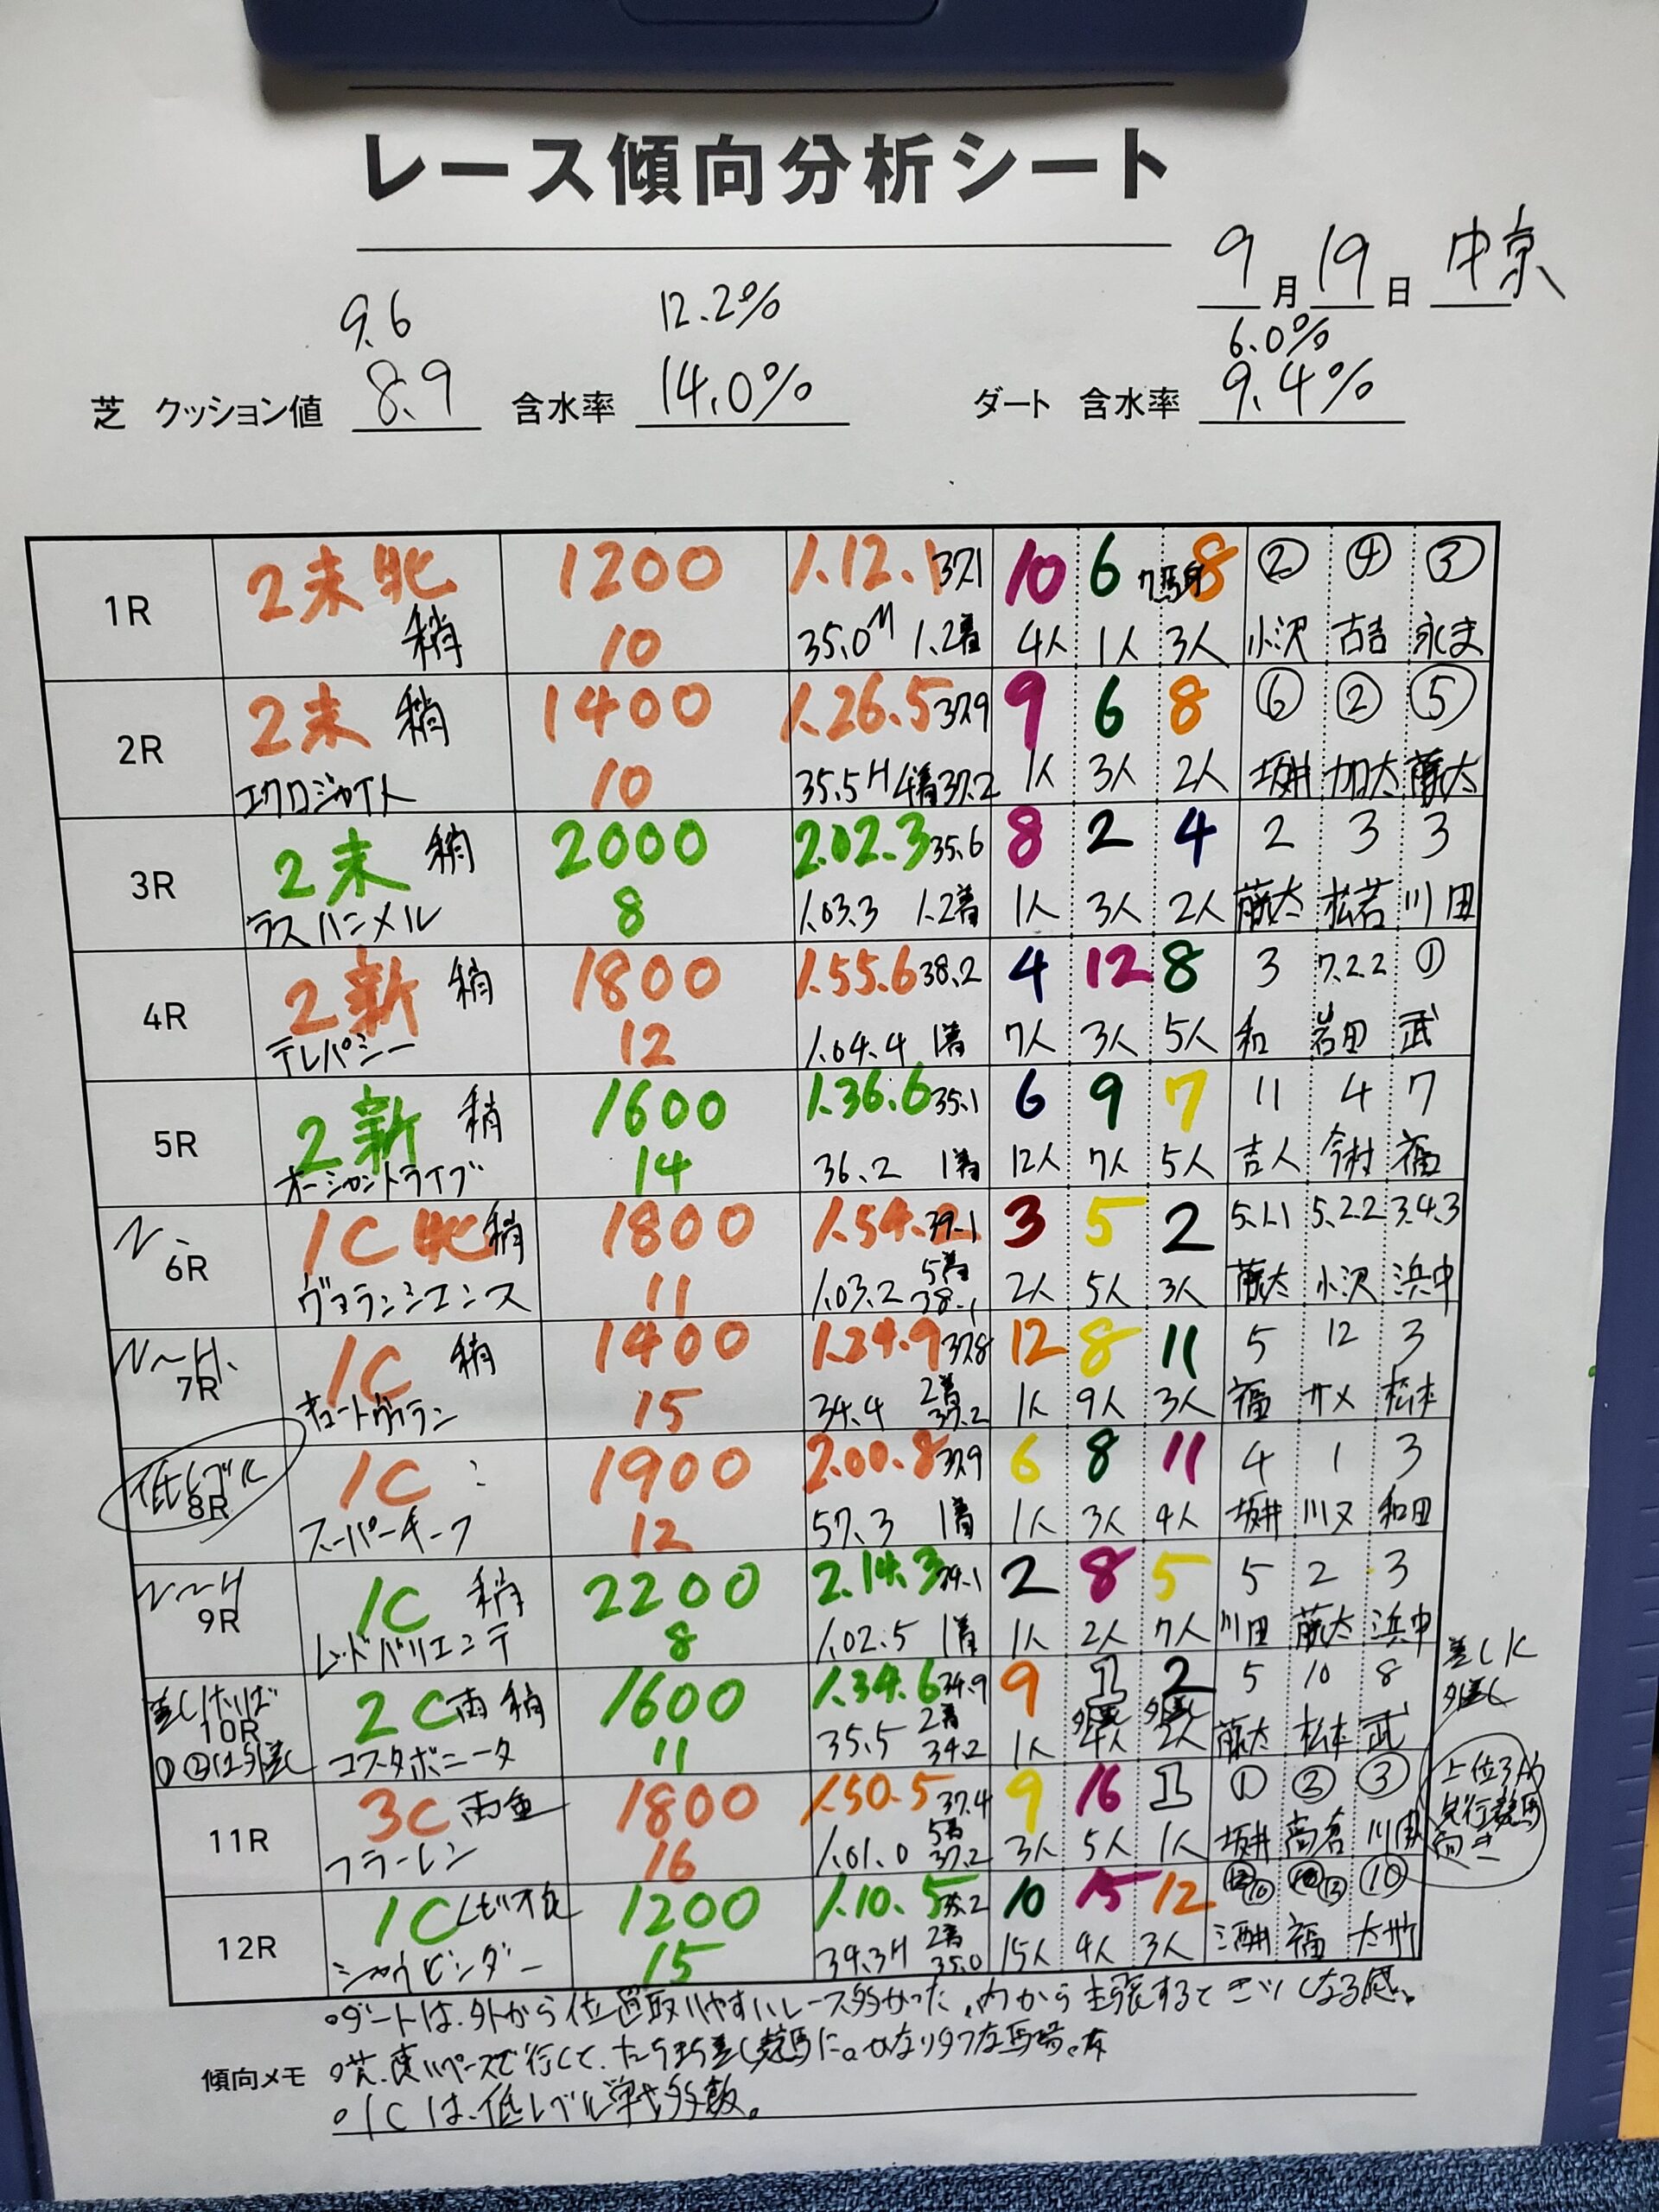 レース傾向分析シート
9月19日 中京
9.6 12.2% 6.0%
芝 クッション値 8.9 含水率 14.0% ダート 含水率 9.4%
1R 2未牝 稍 1200 10 1.12.1 37.1 35.0M 1.2着 10 6 7馬身 8 4人 1人 3人 ② ④ ③ 小沢 古吉 永ま
2R 2未 稍 エクロジャイト 1400 10 1.26.5 37.9 35.5H 4着 37.2 9 6 8 1人 3人 2人 ⑥ ② ⑤ 坂井 加太 藤太
3R 2未 稍 ラスハンメル 2000 8 2.02.3 35.6 1.03.3 1.2着 8 2 4 1人 3人 2人 2 3 3 藤太 松若 川田
4R 2新 稍 テレパシー 1800 12 1.55.6 38.2 1.04.4 1着 4 12 8 7人 3人 5人 3 7.2.2 ① 和 岩田 武
5R 2新 稍 オーシャントライブ 1600 14 1.36.6 35.1 36.2 1着 6 9 7 12人 7人 5人 11 4 7 吉人 今村 福
6R 1C牝 稍 ヴァランシエンス 1800 11 1.54.2 39.1 1.03.2 5着 38.1 3 5 2 2人 5人 3人 5.1.1 5.2.2 3.4.3 藤太 小沢 浜中
7R 1C 稍 キュートヴィラン 1400 15 1.24.9 37.8 34.4 2着 37.2 12 8 11 1人 9人 3人 5 12 3 福 サメ 松本
低レベル
8R 1C スーパーチーフ 1900 12 2.00.8 37.9 57.3 1着 6 8 11 1人 3人 4人 4 1 3 坂井 川又 和田
9R 1C 稍 レッドバリエンテ 2200 8 2.14.3 34.1 1.02.5 1着 2 8 5 1人 2人 7人 5 2 3 川田 藤太 浜中
10R ①②は外差し 2C 雨 稍 コスタボニータ 1600 11 1.34.6 34.9 35.5 2着 34.2 9 1 2 外差 外差 1人 4人 2人 5 10 8 藤太 松本 武
差しに
外差し
11R 3C 雨 重 フラーレン 1800 16 1.50.5 37.4 1.01.0 5着 37.2 9 16 1 3人 5人 1人 ① ② ③ 坂井 高倉 川田
上位3头
先行競馬
向き
12R 1C シャウビンダー 1200 15 1.10.5 35.2 34.3H 2着 35.0 10 15 12 15人 4人 3人 ⑩ ⑫ ⑩ 酒井 福
傾向メモ
○ダートは、外から位置取りやすいレース多かった。内から主張するとキツくなる感。
○芝、速いペースで行くて、たちまち差し競馬に。かなりタフな馬場。
○1Cは、低レベル戦多数。